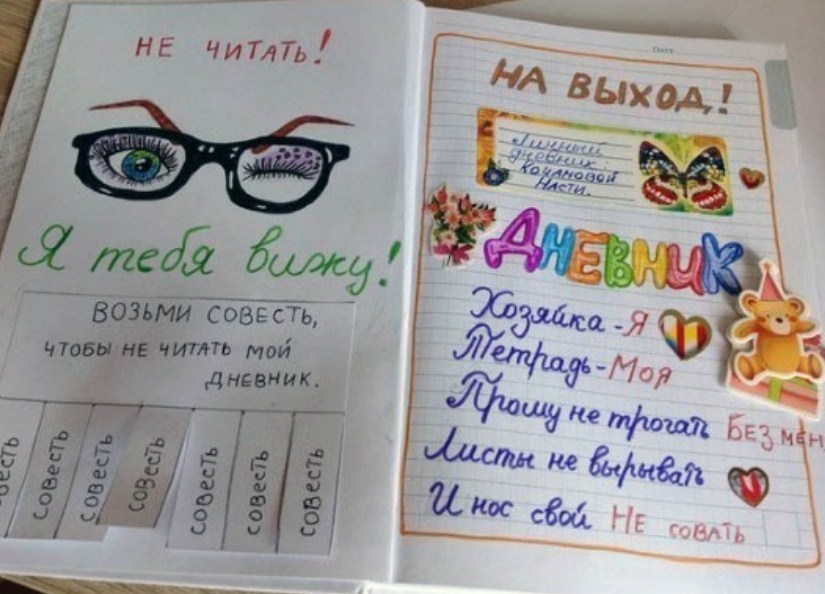 НЕ ЧИТАТЬ!
Я тебя вижу!
ВОЗЬМИ СОВЕСТЬ,
ЧТОБЫ НЕ ЧИТАТЬ МОЙ
ДНЕВНИК.
СОВЕСТЬ
СОВЕСТЬ
СОВЕСТЬ
СОВЕСТЬ
СОВЕСТЬ
СОВЕСТЬ
DATE
НА ВЫХОД!
Личный
дневник
НАСТИ.
ДНЕВНИК
Хозяйка - Я
Тетрадь - Моя
Прошу не трогать БЕЗ МЕН
Листы не вырывать
И нос свой НЕ СОВАТЬ